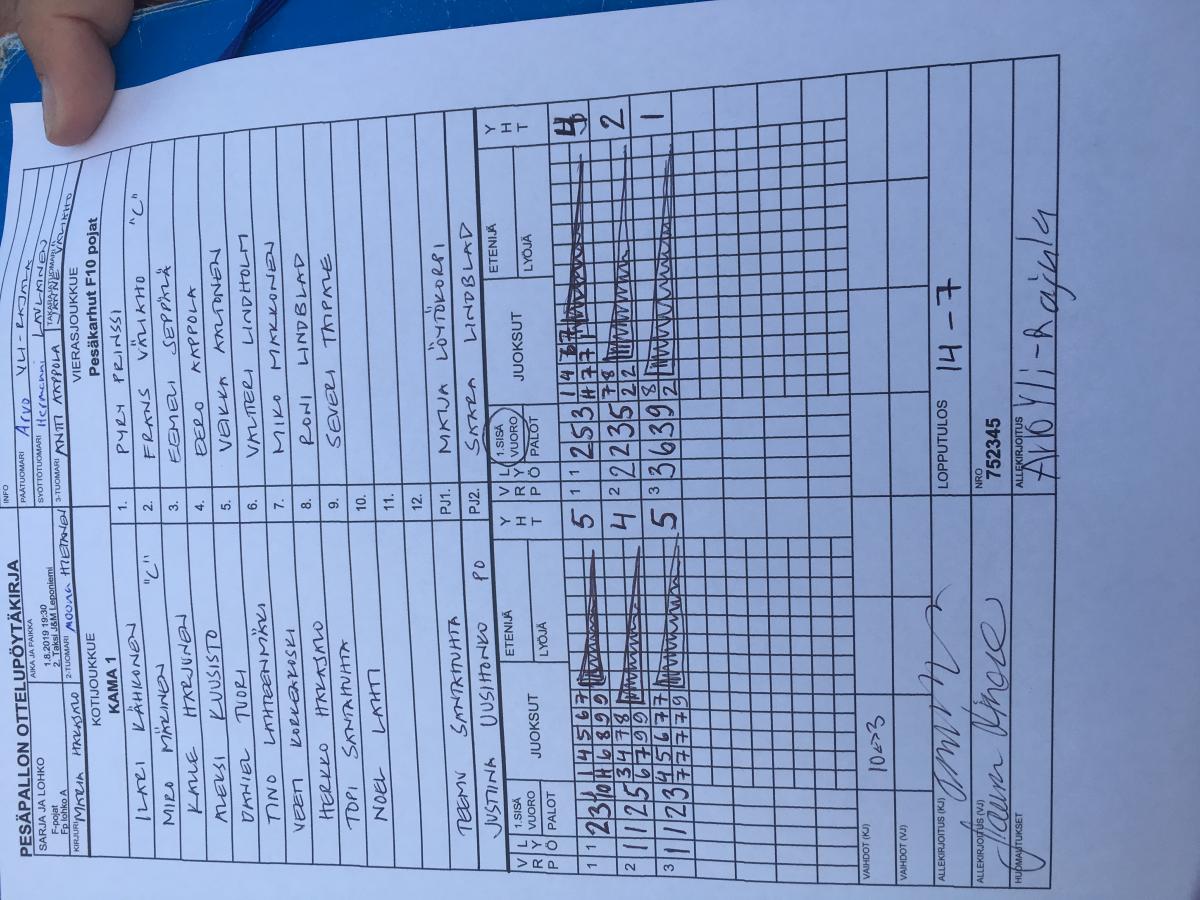 PESÄPALLON OTTELUPÖYTÄKIRJA
INFO
SARJA JA LOHKO
F-pojat
Fp lohko A
AIKA JA PAIKKA
1.8.2019 19:30
2. Taksi J&M Leponiemi
PÄÄTUOMARI Arvo YLI-RAJALA
SYÖTTÖTUOMARI Hermanni LAVLAINEN
KIRJURI MARIA HAKASALO
2-TUOMARI Moona HIETANEN
3-TUOMARI ANTTI AAPPOLA
TAKARAJATUOMARI JANNE VÄLIKHO
KOTIJOUKKUE
KAMA 1
VIERASJOUKKUE
Pesäkarhut F10 pojat
ILARI KÄHKÖNEN "C"
1. PYRY PRINSSI
MIRO MÄKINEN
2. FRANS VÄLIKHO "C"
KALLE HARJUNEN
3. EEMELI SEPPÄLÄ
ALEKSI KUUSISTO
4. EERO AAPPOLA
DANIEL TUORI
5. VEIKKA AALTONEN
TINO LAHTEENMÄKI
6. VALTTERI LINDHOLM
VEETI KORKEAKOSKI
7. MIKO MAKKONEN
HERKKO HAKASALO
8. RONI LINDBLAD
TOPI SANTAHUHTA
9. SEVERI TAIPALE
NOEL LAHTI
10.
11.
12.
TEEMU SANTAHUHTA
PJ1. MAIJA LÖYTÖKORPI
JUSTIINA UUSIHONKO PO
PJ2. SAARA LINDBLAD
V R P
L Y Ö
1.SISÄ VUORO
PALOT
JUOKSUT
ETENIJÄ
LYÖJÄ
Y H T
V R P
L Y Ö
1.SISÄ VUORO
PALOT
JUOKSUT
ETENIJÄ
LYÖJÄ
Y H T
1 1 2 3 10 1 4 5 6 7 5
6 8 9 9
1 1 2 5 3 4
2 1 1 2 5 3 4 7 8 4
6 7 9 9
2 2 2 3 5 7 8 2
2 2
3 1 1 2 3 4 5 6 7 7 5
7 7 7 7 9
3 3 6 3 9 8 1
2
VAIHDOT (KJ) 10<->3
VAIHDOT (VJ)
ALLEKIRJOITUS (KJ)
LOPPUTULOS 14-7
ALLEKIRJOITUS (VJ)
NRO
752345
HUOMAUTUKSET
ALLEKIRJOITUS
Arvo Yli-Rajala